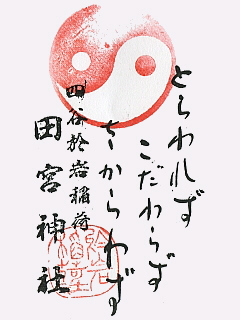 とらわれず
こだわらず
さからわず
四谷於岩稲荷
田宮神社